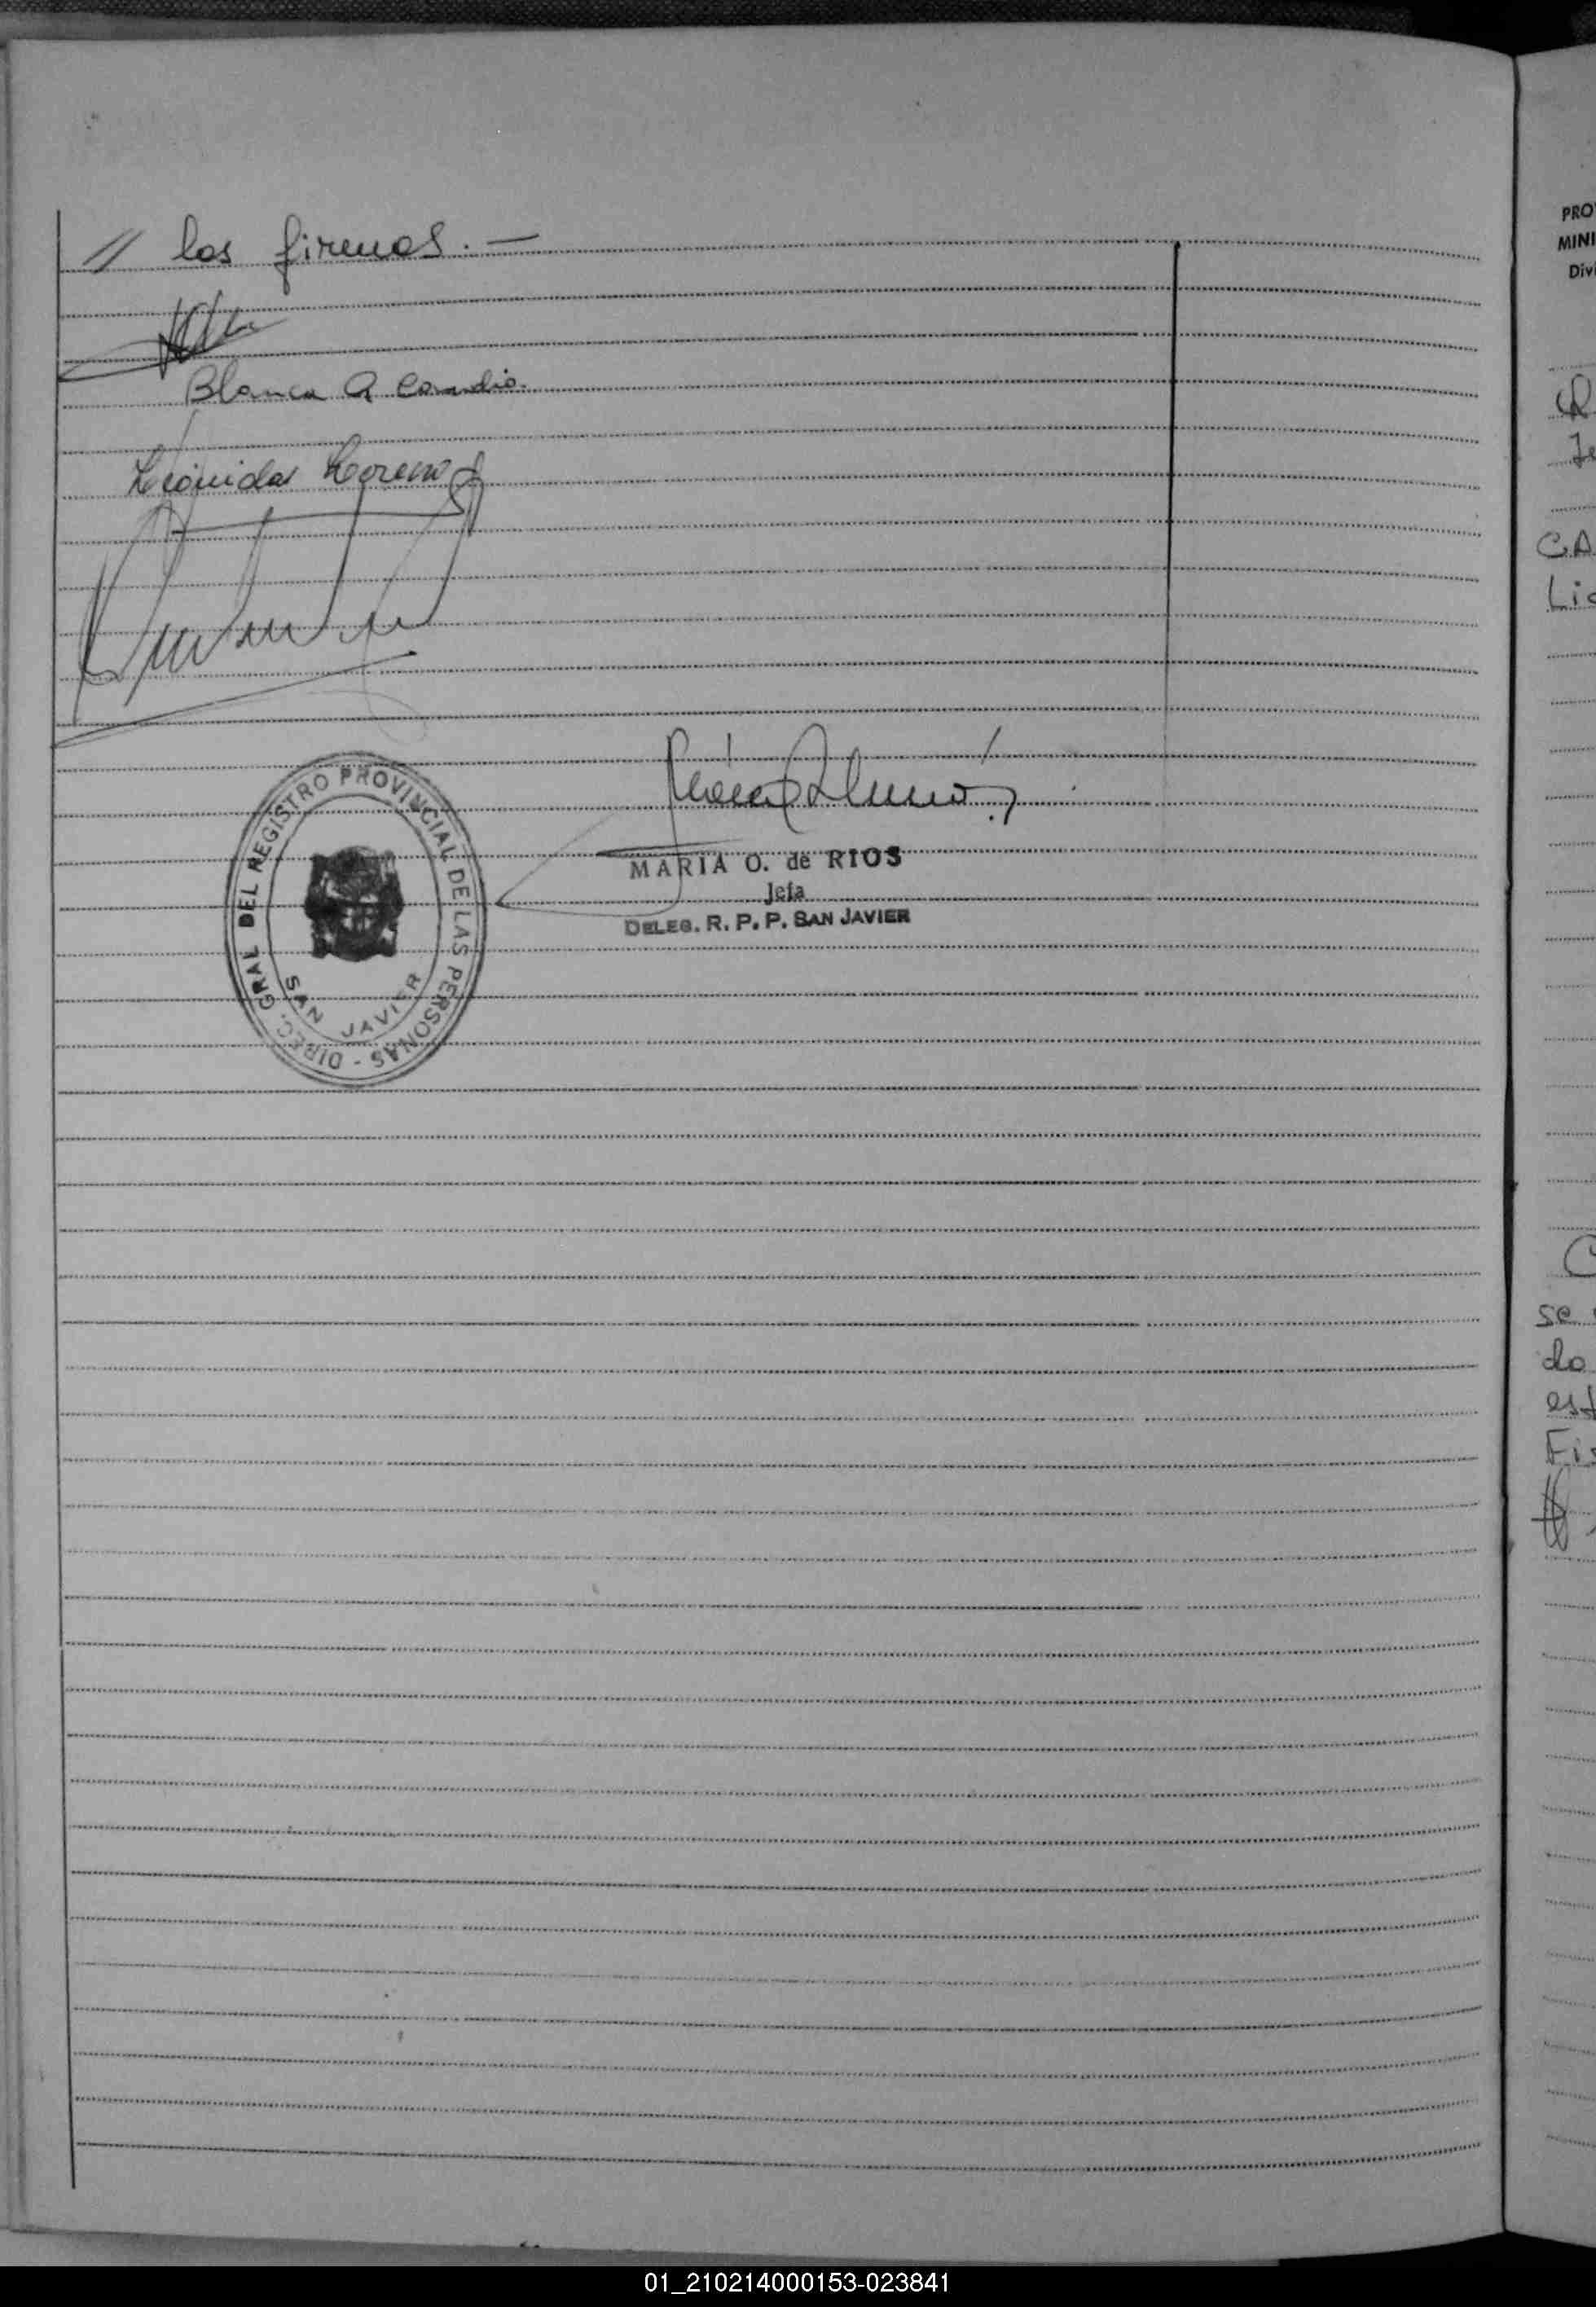 // las firmas. —
Blanca A
Leonidas Moreno
DIREC. GRAL DEL REGISTRO PROVINCIAL DE LAS PERSONAS -
SAN JAVIER
MARIA O. de RIOS
Jefa
DELEG. R. P. P. SAN JAVIER
PRO
MINI
Divi
C.A
Lic
se
do
est
Fis
01_210214000153-023841